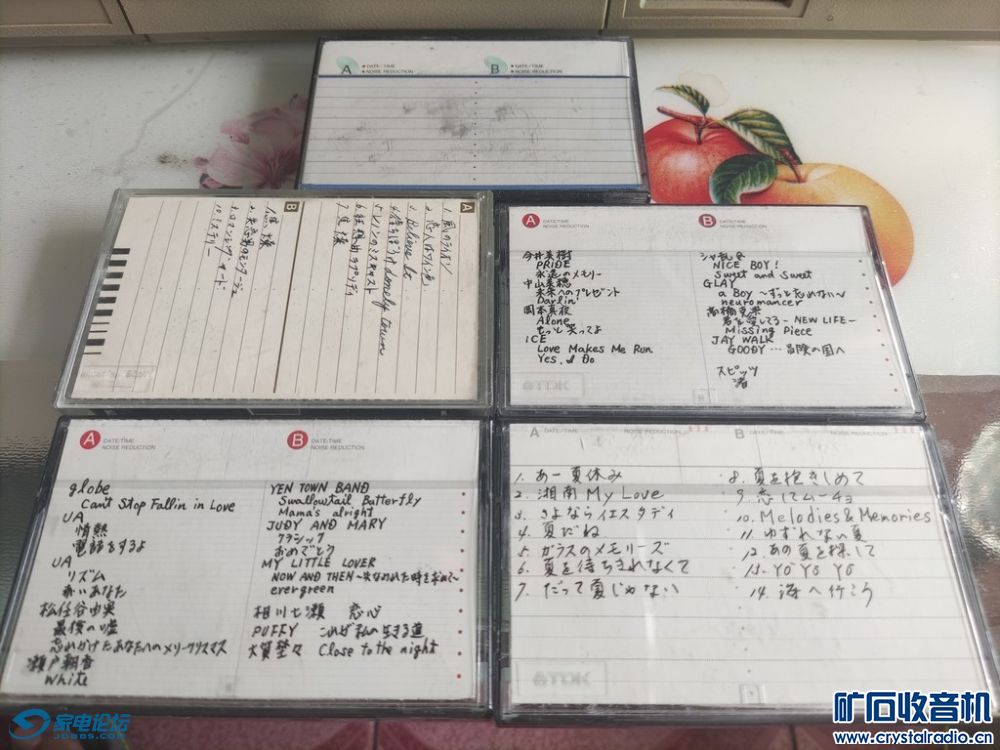 A DATE/TIME NOISE REDUCTION B DATE/TIME NOISE REDUCTION
A
1. 風のライオン
2. 恋人はワイン色
3. Believe be
4. 僕らはずっと lonely town
5. レノンのミスキャスト
6. 狂想曲ラプソディ
B
2. 失恋男のモンタージュ
3. ロマンシング・ヤード
10. ミステリー
A DATE/TIME NOISE REDUCTION B DATE/TIME NOISE REDUCTION
今井美樹
PRIDE
永遠のメモリー
中山美穂
未来へのプレゼント
Darlin'
岡本真夜
Alone
もっと笑ってよ
ICE
Love Makes Me Run
Yes, I Do
シャ乱Q
NICE BOY!
Sweet and Sweet
GLAY
a Boy ~ずっと忘れない~
neuromancer
高橋克典
君を愛してる - NEW LIFE -
Missing Piece
JAY WALK
GOODY…冒険の国へ
スピッツ
渚
TDK
A DATE/TIME NOISE REDUCTION B DATE/TIME NOISE REDUCTION
globe
Can't Stop Fallin in Love
UA
情熱
電話をするよ
UA
リズム
赤いあなた
松任谷由実
最後の嘘
忘れかけたあなたへのメリークリスマス
瀬戸朝香
White
YEN TOWN BAND
Swallowtail Butterfly
Mama's alright
JUDY AND MARY
クラシック
おめでとう
MY LITTLE LOVER
NOW AND THEN ~失なわれた時を求めて~
evergreen
相川七瀬 恋心
PUFFY これが私の生きる道
大賀埜々 Close to the night
A DATE/TIME NOISE REDUCTION B DATE/TIME NOISE REDUCTION
1. あー夏休み
2. 湘南 My Love
3. さよならイエスタデイ
4. 夏だね
5. ガラスのメモリーズ
6. 夏を待ちきれなくて
7. だって夏じゃない
8. 夏を抱きしめて
9. 恋してムーチョ
10. Melodies & Memories
11. ゆずれない夏
12. あの夏を探して
13. YO YO YO
14. 海へ行こう
TDK
家电论坛
JDBBS.COM
矿石收音机
www.crystalradio.cn